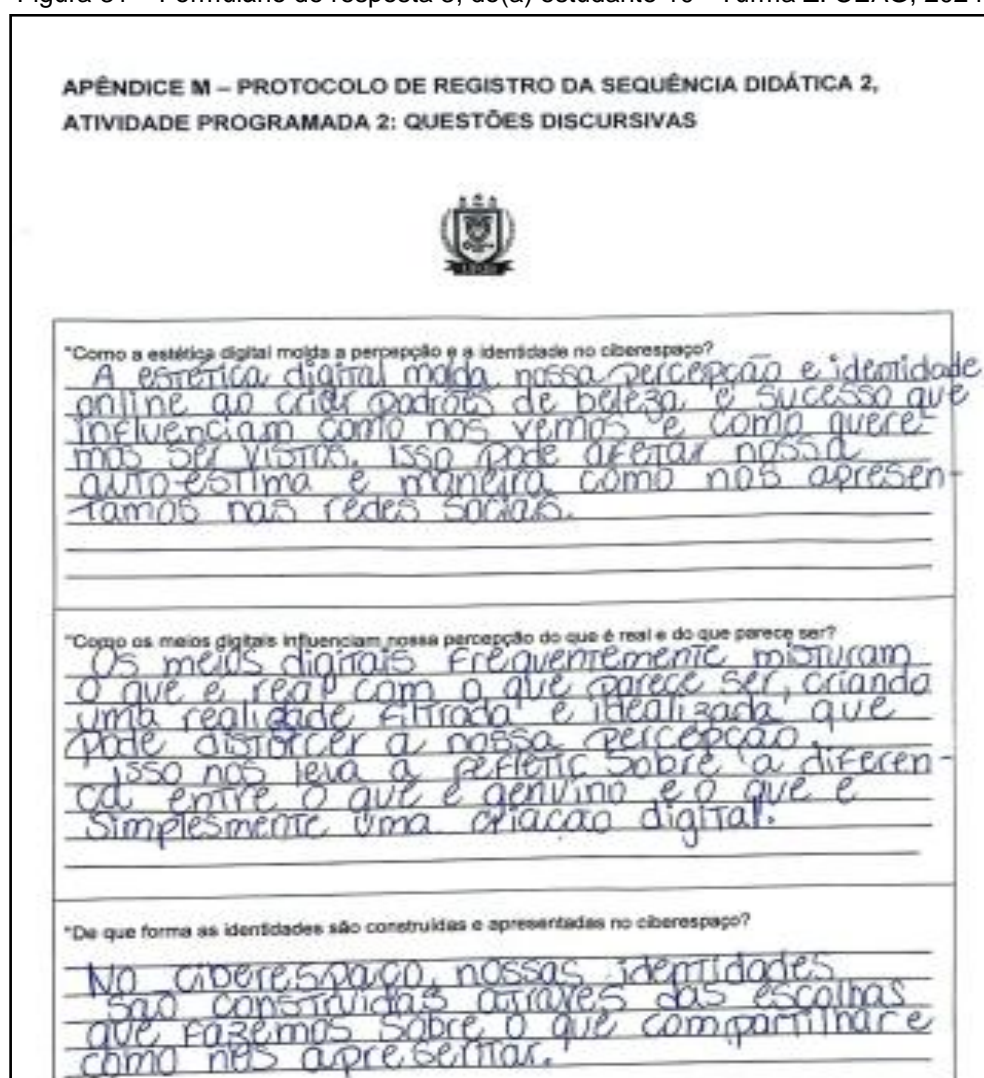 APÊNDICE M – PROTOCOLO DE REGISTRO DA SEQUÊNCIA DIDÁTICA 2,
ATIVIDADE PROGRAMADA 2: QUESTÕES DISCURSIVAS
"Como a estética digital molda a percepção e a identidade no ciberespaço?
A estética digital molda nossa percepção e identidade
online ao criar padrões de beleza e sucesso que
influenciam como nos vemos e como quere-
mos ser vistos. Isso pode afetar nossa
auto-estima e maneira como nos apresen-
tamos nas redes sociais.
"Como os meios digitais influenciam nossa percepção do que é real e do que parece ser?
Os meios digitais frequentemente misturam
o que e real com o que parece ser, criando
uma realidade filtrada e idealizada que
pode distorcer a nossa percepção.
isso nos leva a refletir sobre a diferen-
ca entre o que é genuino e o que e
simplesmente uma criacao digital.
"De que forma as identidades são construídas e apresentadas no ciberespaço?
No ciberespaço, nossas identidades
são construidas atraves das escolhas
que fazemos sobre o que compartilhar e
como nos apresentar.